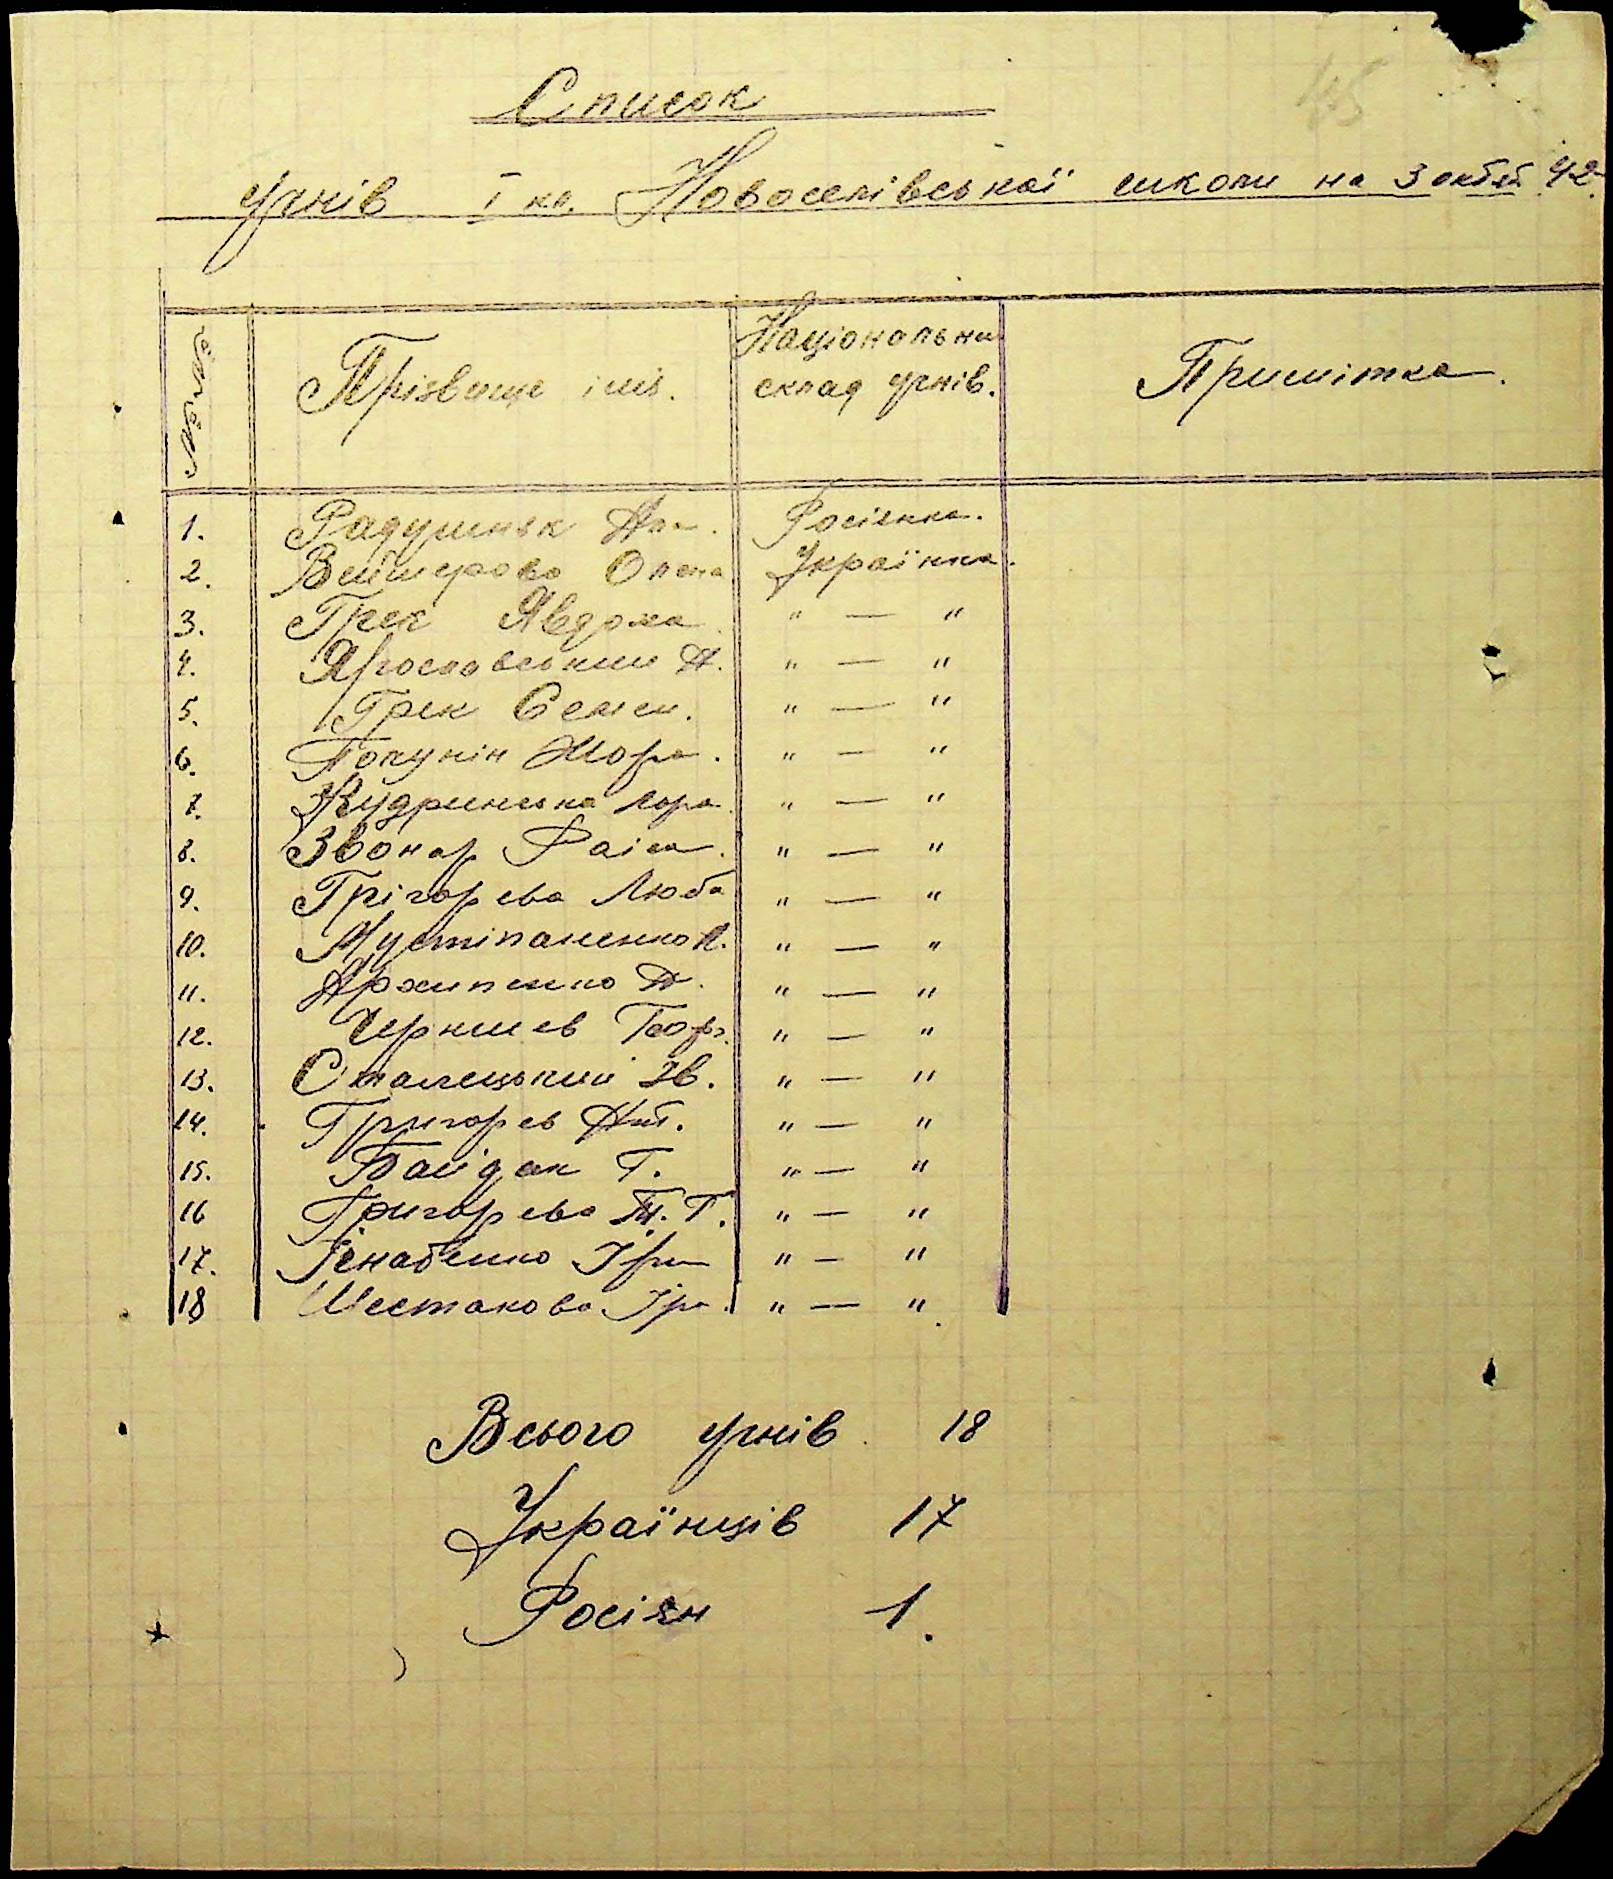 45
Список
учнів I кл. Новоселівської школи на 3 октяб. 42
№№ Прізвище ім'я. Національни склад учнів. Примітка.
1. Радушинск Ал. Росіянка.
2. Веймерова Олена Українка.
3. Грек Явдоха " — "
4. Ярославський " — "
5. Грек Семен. " — "
6. Попунін Жора. " — "
7. Кудринська Лора. " — "
8. Звонар Раіса. " — "
9. Грігорева Люба " — "
10. " — "
11. Архипенко " — "
12. Чернишев Георг. " — "
13. Ів. " — "
14. Григорев Ант. " — "
15. Байдак Г. " — "
16 Григорева Т. Г. " — "
17. Гнабенко " — "
18 Шестакова Іра. " — "
Всього учнів 18
Українців 17
Росіян 1.